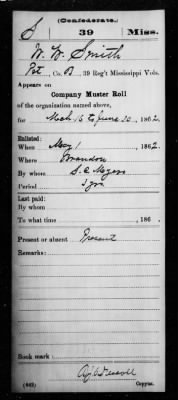 (Confederate.)
S 39 Miss.
W. W. Smith
Pvt, Co. B, 39 Reg't Mississippi Vols.
Appears on
Company Muster Roll
of the organization named above,
for Mch 15 to June 30, 1862.
Enlisted:
When May 1, 1862.
Where Brandon
By whom S. C. Myers
Period 3 yrs
Last paid:
By whom
To what time , 186 .
Present or absent Present
Remarks:
Book mark:
(642) Copyist.